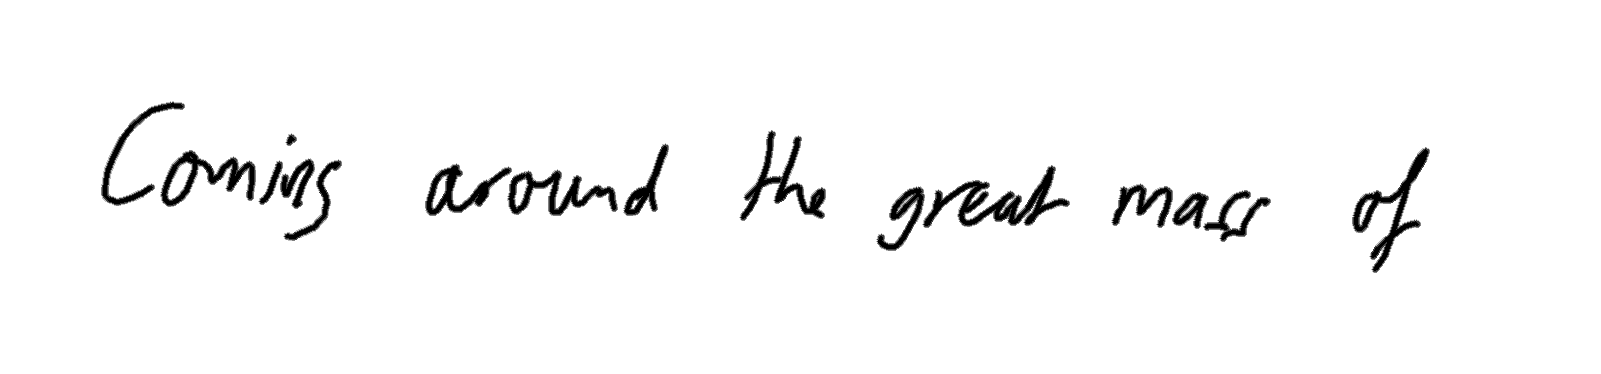 Coming around the great mass of